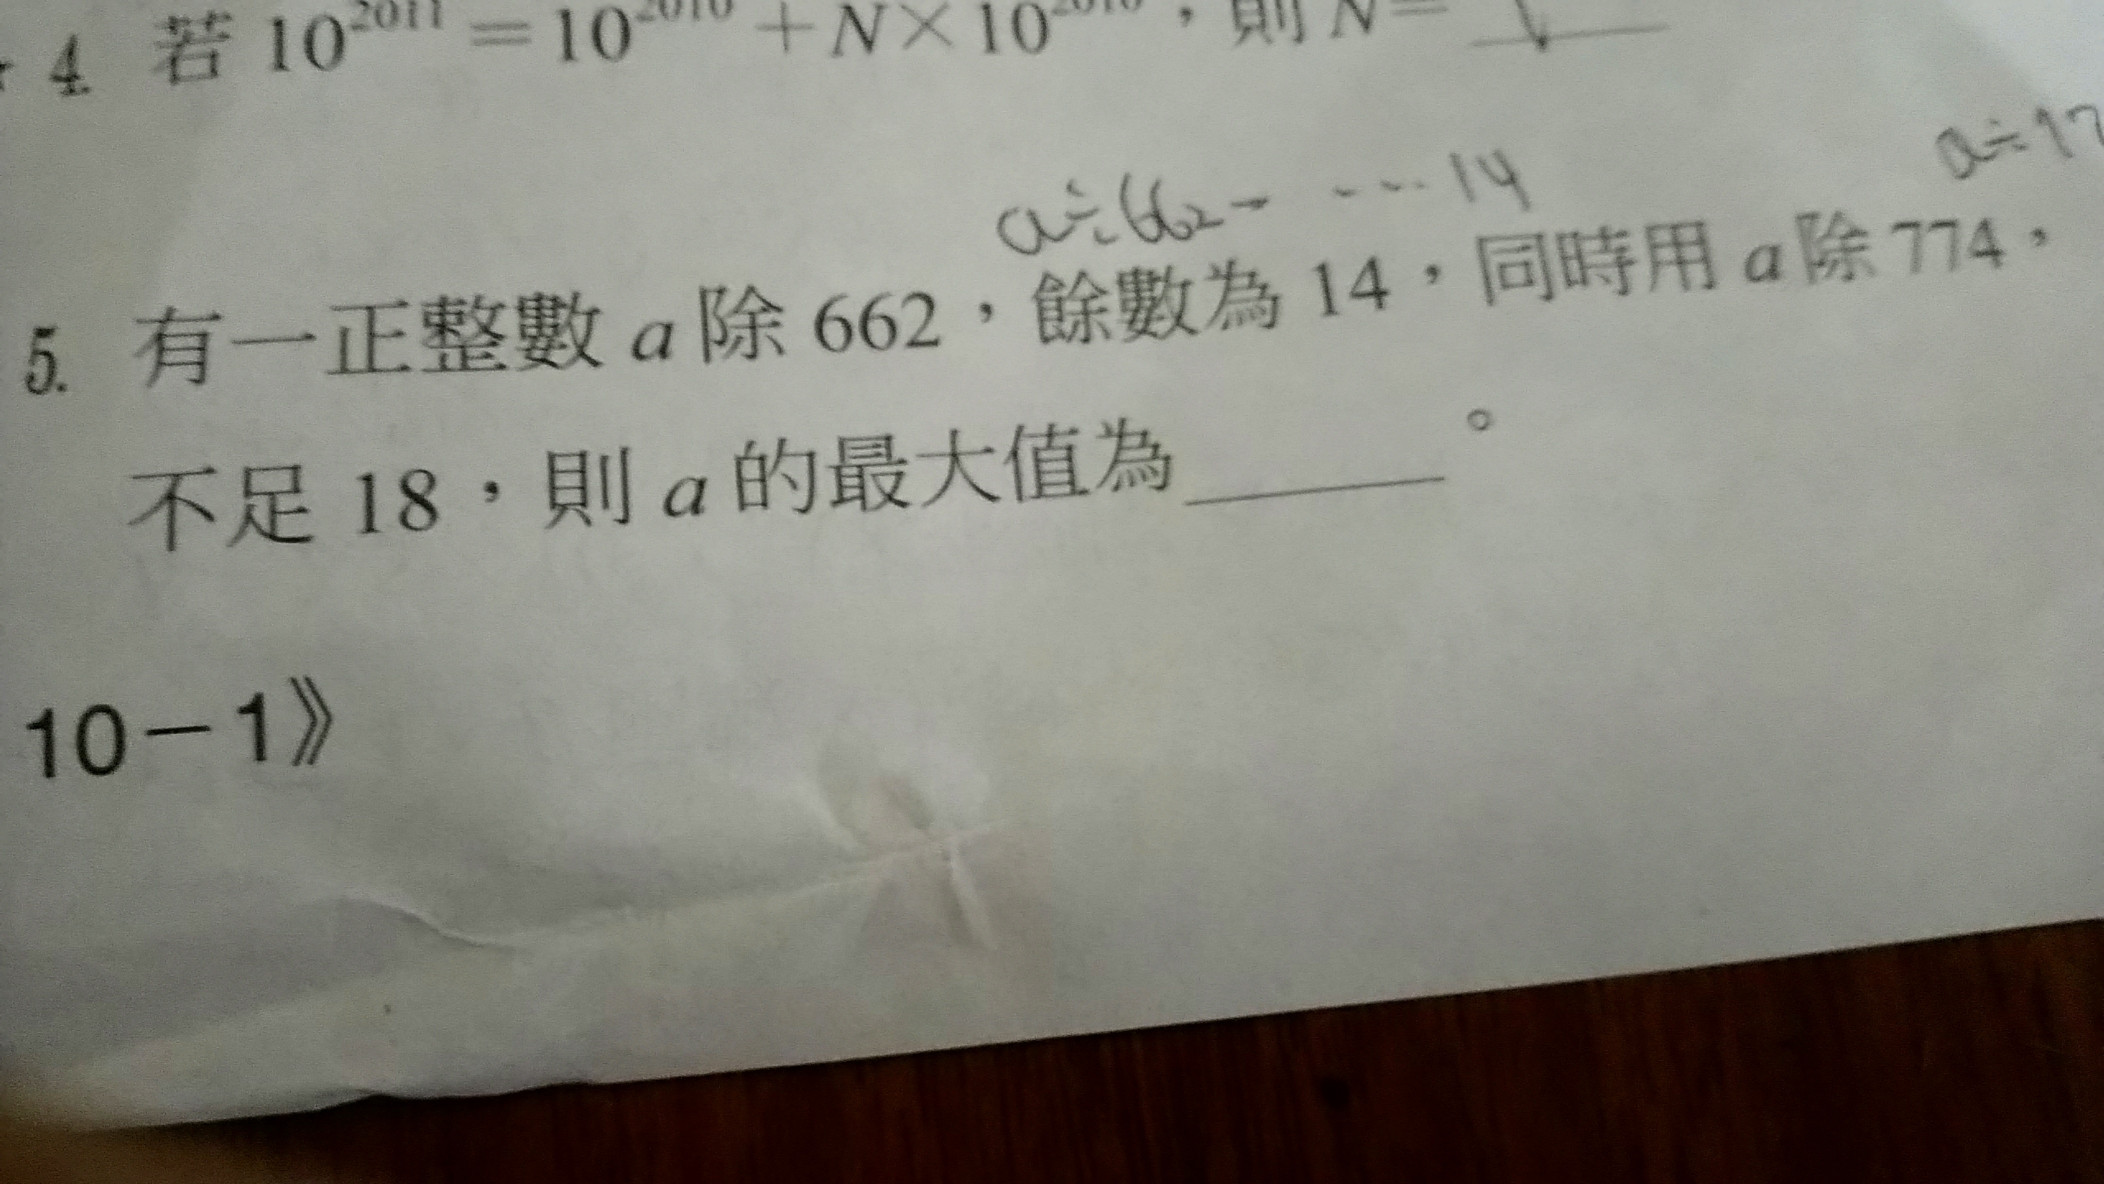 4. 若 10²⁰¹¹=10²⁰¹⁰+N×10²⁰¹⁰,則 N=
a÷662-...14
a÷17
5. 有一正整數 a 除 662,餘數為 14,同時用 a 除 774,
不足 18,則 a 的最大值為______。
10-1》